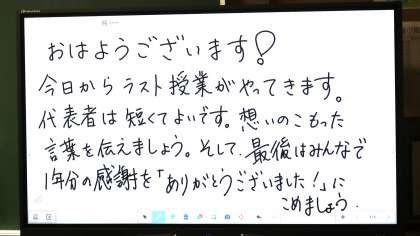 おはようございます!
今日からラスト授業がやってきます。
代表者は短くてよいです。想いのこもった
言葉を伝えましょう。そして、最後はみんなで
1年分の感謝を「ありがとうございました!」に
こめましょう.